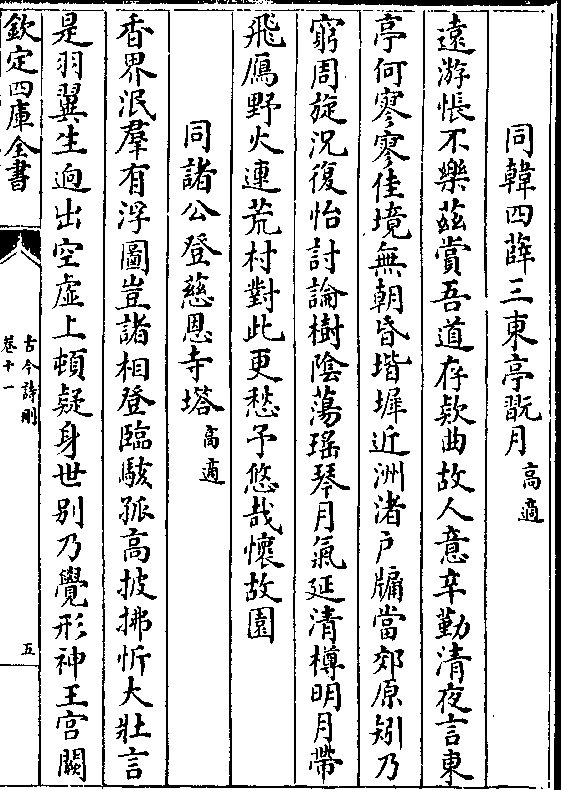 同韓四薛三東亭翫月　高適
遠游悵不樂茲賞吾道存欵曲故人意辛勤清夜言東
亭何寥寥佳境無朝昏堦墀近洲渚戶牖當郊原矧乃
窮周旋況復怡討論樹陰蕩瑶琴月氣延清樽明月帶
飛鴈野火連荒村對此更愁予悠哉懷故園
同諸公登慈恩寺塔　高適
香界泯羣有浮圖豈諸相登臨駭孤高披拂忻大壯言
是羽翼生逈出空虛上頓疑身世别乃覺形神王宫闕
欽定四庫全書
古今詩刪
卷十一
五